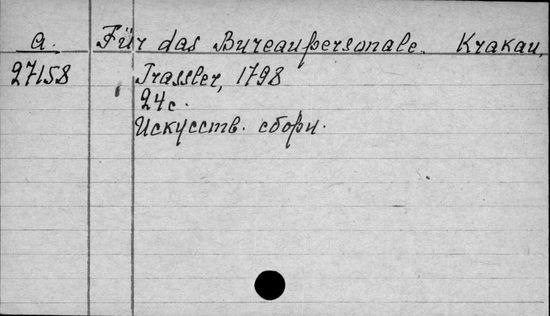 a. Für das Bureaupersonale. Krakau,
27158 Trassler, 1798
24 с.
Искусств. сборн.